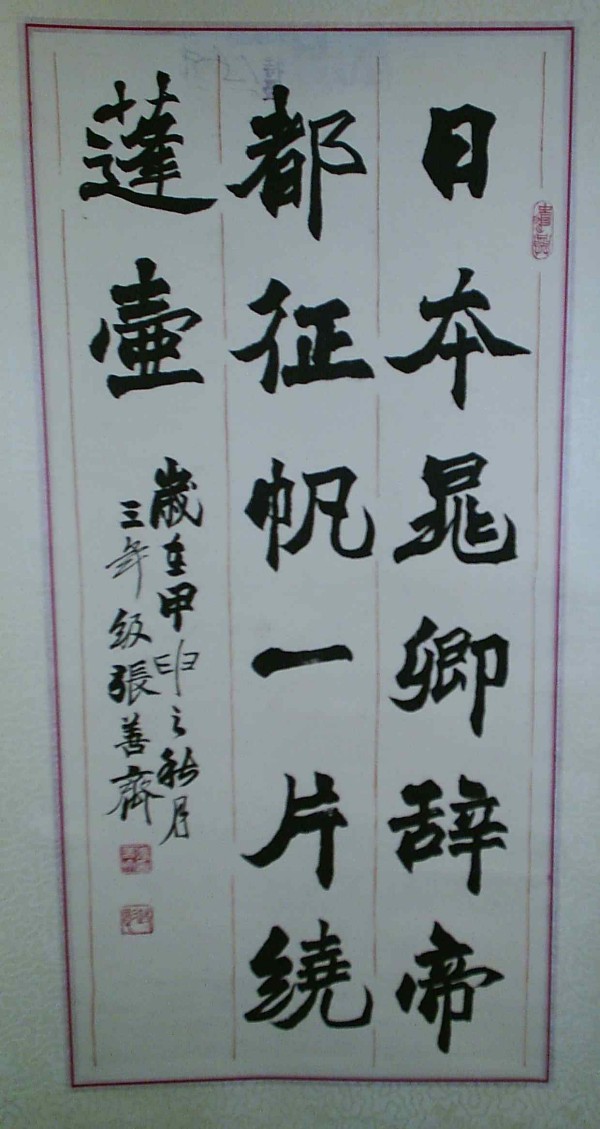 日本晁卿辞帝
都征帆一片繞
蓬壺
歲在甲申之秋月
三年级張善齊